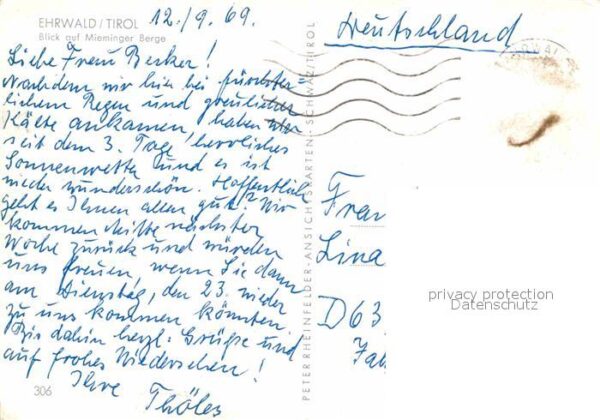 EHRWALD / TIROL
Blick auf Mieminger Berge
12./9. 69.
Liebe Frau Becker!
Nachdem wir hier bei fürchter=
lichem Regen und greulicher
Kälte ankamen, haben wir
seit dem 3. Tage herrliches
Sonnenwetter und es ist
wieder wunderschön. Hoffentlich
geht es Ihnen allen gut? Wir
kommen Mitte nächster
Woche zurück und würden
uns freuen, wenn Sie dann
am Dienstag, den 23. wieder
zu uns kommen könnten.
Bis dahin herzl. Grüße und
auf frohes Wiedersehen!
Ihre
Thöles
306
PETER RHEINFELDER - ANSICHTSKARTEN - SCHWAZ/TIROL
Deutschland
Frau
Lina
D 63
privacy protection
Datenschutz